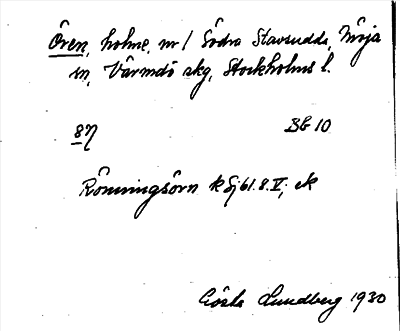 Ören, holme, nr 1 Södra Stavsudda, Möja
sn, Värmdö skg, Stockholms l.
87 Bb 10
Rönningsörn k Sj 61.8.V; ek
Gösta Lundberg 1930